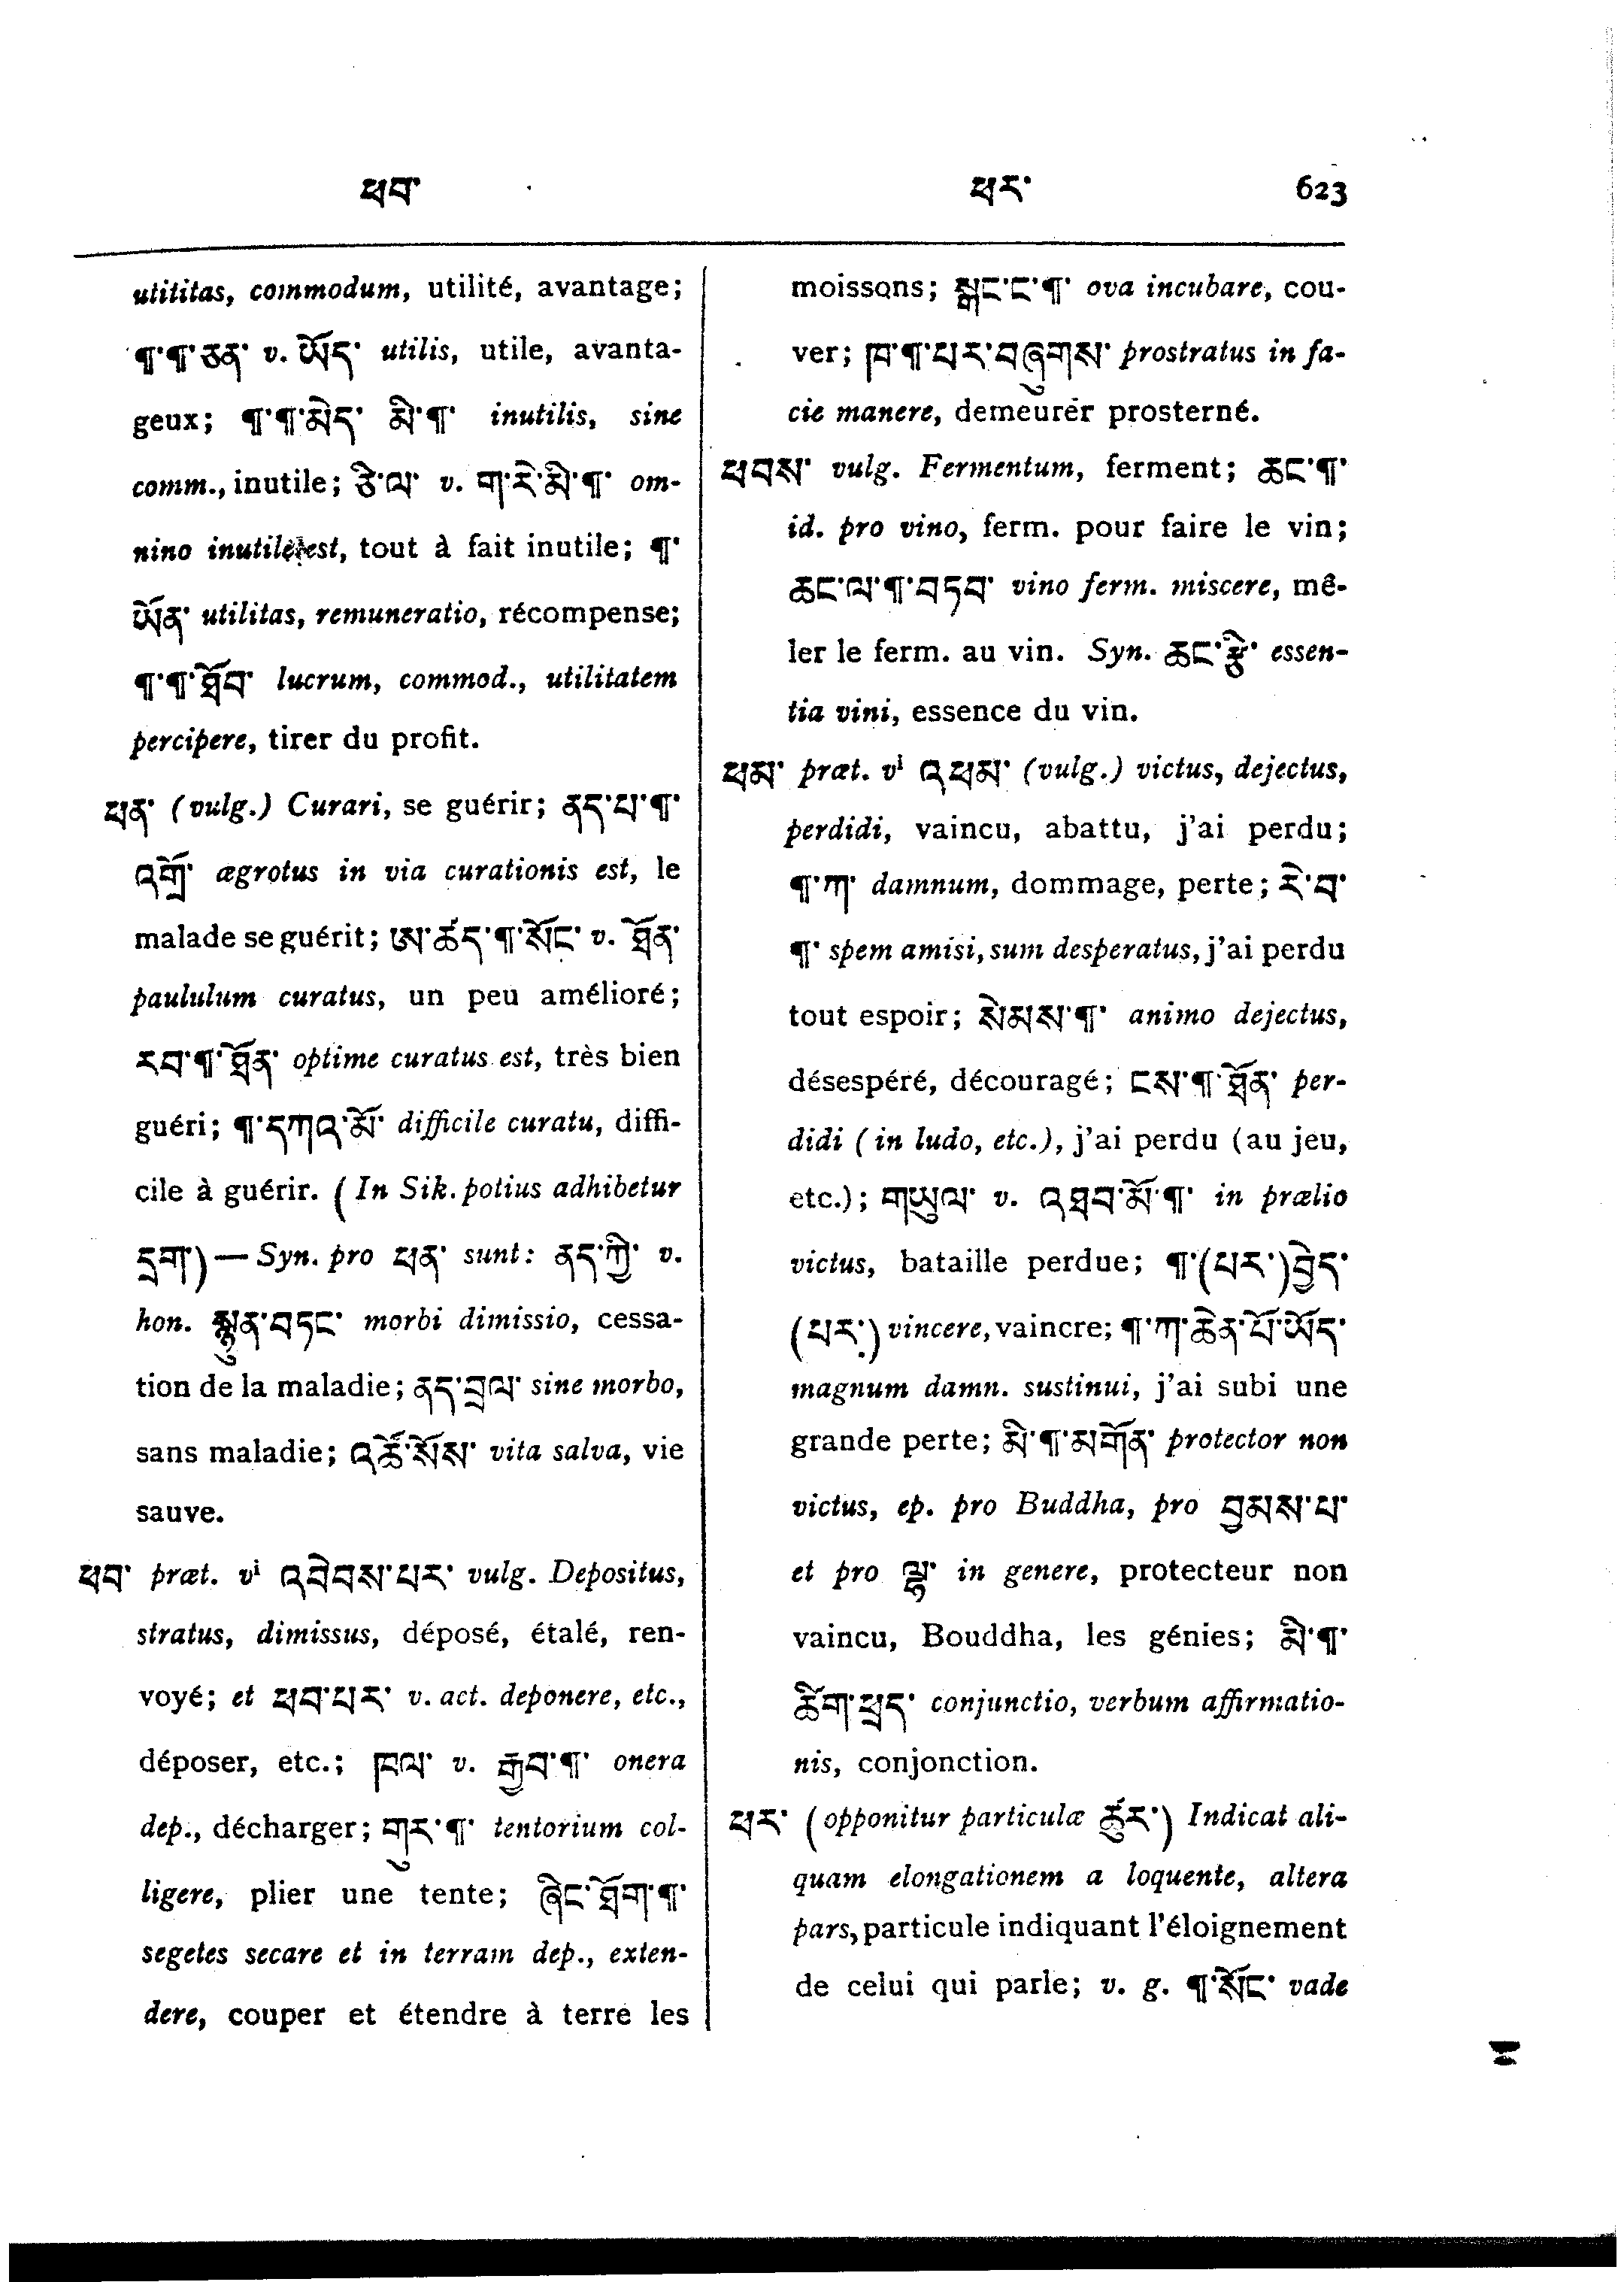 ཕབ་
ཕར་ 623
utilitas, commodum, utilité, avantage;
¶་¶་ཅན་ v. ཡོད་ utilis, utile, avanta-
geux; ¶་¶་མེད་ མི་¶་ inutilis, sine
comm., inutile; ཅི་ལ་ v. ག་རེ་མི་¶་ om-
nino inutile est, tout à fait inutile; ¶་
ཡོན་ utilitas, remuneratio, récompense;
¶་¶་ཐོབ་ lucrum, commod., utilitatem
percipere, tirer du profit.
ཕན་ (vulg.) Curari, se guérir; ནད་པ་¶་
འགྲོ་ ægrotus in via curationis est, le
malade se guérit; ཨ་ཚད་¶་སོང་ v. ཐོན་
paululum curatus, un peu amélioré;
རབ་¶་ཐོན་ optime curatus est, très bien
guéri; ¶་དཀའ་མོ་ difficile curatu, diffi-
cile à guérir. (In Sik. potius adhibetur
དྲག་) — Syn. pro ཕན་ sunt: ནད་ཀྱི་ v.
hon. སྙུན་བཏང་ morbi dimissio, cessa-
tion de la maladie; ནད་བྲལ་ sine morbo,
sans maladie; འཚོ་སོས་ vita salva, vie
sauve.
ཕབ་ præt. vⁱ འབེབས་པར་ vulg. Depositus,
stratus, dimissus, déposé, étalé, ren-
voyé; et ཕབ་པར་ v. act. deponere, etc.,
déposer, etc.; ཁལ་ v. རྒྱབ་¶་ onera
dep., décharger; གུར་¶་ tentorium col-
ligere, plier une tente; ཞིང་ཐོག་¶་
segetes secare et in terram dep., exten-
dere, couper et étendre à terre les
moissons; སྒང་ང་¶་ ova incubare, cou-
ver; ཁ་¶་པར་བཞུགས་ prostratus in fa-
cie manere, demeurer prosterné.
ཕབས་ vulg. Fermentum, ferment; ཆང་¶་
id. pro vino, ferm. pour faire le vin;
ཆང་ལ་¶་བཏབ་ vino ferm. miscere, mê-
ler le ferm. au vin. Syn. ཆང་རྩི་ essen-
tia vini, essence du vin.
ཕམ་ præt. vⁱ འཕམ་ (vulg.) victus, dejectus,
perdidi, vaincu, abattu, j'ai perdu;
¶་ཀ་ damnum, dommage, perte; རེ་བ་
¶་ spem amisi, sum desperatus, j'ai perdu
tout espoir; སེམས་¶་ animo dejectus,
désespéré, découragé; ངས་¶་ཐོན་ per-
didi (in ludo, etc.), j'ai perdu (au jeu,
etc.); གཡུལ་ v. འཐབ་མོ་¶་ in prælio
victus, bataille perdue; ¶་(པར་)བྱེད་
(པར་) vincere, vaincre; ¶་ཀ་ཆེན་པོ་ཡོད་
magnum damn. sustinui, j'ai subi une
grande perte; མི་¶་མགོན་ protector non
victus, ep. pro Buddha, pro བྱམས་པ་
et pro ལྷ་ in genere, protecteur non
vaincu, Bouddha, les génies; མི་¶་
ཚིག་ཕྲད་ conjunctio, verbum affirmatio-
nis, conjonction.
ཕར་ (opponitur particulæ ཚུར་) Indicat ali-
quam elongationem a loquente, altera
pars, particule indiquant l'éloignement
de celui qui parle; v. g. ¶་སོང་ vade